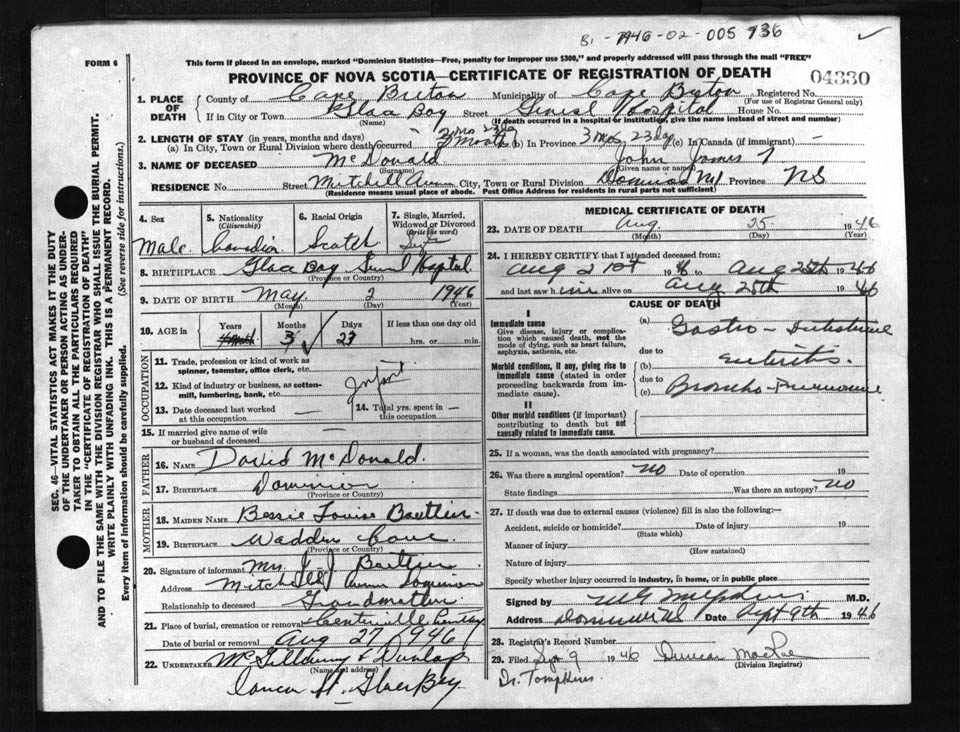 1946-02-005 736
FORM 6
This form if placed in an envelope, marked "Dominion Statistics—Free, penalty for improper use $300," and properly addressed will pass through the mail "FREE"
PROVINCE OF NOVA SCOTIA—CERTIFICATE OF REGISTRATION OF DEATH
04330
1. PLACE OF DEATH County of Cape Breton Municipality of Cape Breton Registered No.
(For use of Registrar General only)
If in City or Town Glace Bay Street General Hospital House No.
(Name) (If death occurred in a hospital or institution, give the name instead of street and number)
2. LENGTH OF STAY (in years, months and days)
(a) In City, Town or Rural Division where death occurred 3 mos 23 da (b) In Province 3 mos 23 da (c) In Canada (if immigrant) —
3. NAME OF DECEASED McDonald John James
(Surname) (Given name or names)
RESIDENCE No. Street Mitchell Ave City, Town or Rural Division Dominion No 1 Province NS
(Residence means usual place of abode. Post Office Address for residents in rural parts not sufficient)
4. Sex
Male
5. Nationality (Citizenship)
Canadian
6. Racial Origin
Scotch
7. Single, Married, Widowed or Divorced (Write the word)
Single
8. BIRTHPLACE Glace Bay General Hospital
(Province or Country)
9. DATE OF BIRTH May 2 1946
(Month) (Day) (Year)
10. AGE in Years Months 3 Days 23 If less than one day old
hrs. or min.
OCCUPATION
11. Trade, profession or kind of work as spinner, teamster, office clerk, etc.
12. Kind of industry or business, as cotton-mill, lumbering, bank, etc.
Infant
13. Date deceased last worked at this occupation —
14. Total yrs. spent in this occupation —
15. If married give name of wife or husband of deceased —
FATHER
16. NAME David McDonald.
17. BIRTHPLACE Dominion
(Province or Country)
MOTHER
18. MAIDEN NAME Bessie Louise
19. BIRTHPLACE Wadden Cove
(Province or Country)
20. Signature of informant Mrs J. J.
Address Mitchell Dominion
Relationship to deceased Grandmother
21. Place of burial, cremation or removal Centerville
Date of burial or removal Aug 27 1946
22. UNDERTAKER McGillivray & Dunlop
(Name and address)
St. Glace Bay
MEDICAL CERTIFICATE OF DEATH
23. DATE OF DEATH Aug. 25 1946
(Month) (Day) (Year)
24. I HEREBY CERTIFY that I attended deceased from:
Aug 21st 46 to Aug 25th 1946
and last saw him alive on Aug 25th 1946
CAUSE OF DEATH
I
Immediate cause
Give disease, injury or complication which caused death, not the mode of dying, such as heart failure, asphyxia, asthenia, etc.
Morbid conditions, if any, giving rise to immediate cause (stated in order proceeding backwards from immediate cause).
II
Other morbid conditions (if important) contributing to death but not causally related to immediate cause.
(a) Gastro - Intestinal
due to
(b) Enteritis.
due to
(c) Broncho-Pneumonia
25. If a woman, was the death associated with pregnancy?
26. Was there a surgical operation? no Date of operation 19
State findings Was there an autopsy? no
27. If death was due to external causes (violence) fill in also the following:—
Accident, suicide or homicide? Date of injury 19
(State which)
Manner of injury
(How sustained)
Nature of injury
Specify whether injury occurred in industry, in home, or in public place
Signed by M.D.
Address Dominion NS Date Sept 9th 1946
28. Registrar's Record Number
29. Filed Sept 9 1946 Duncan MacRae
(Division Registrar)
Dr. Tompkins
SEC. 46—VITAL STATISTICS ACT MAKES IT THE DUTY
OF THE UNDERTAKER OR PERSON ACTING AS UNDER-
TAKER TO OBTAIN ALL THE PARTICULARS REQUIRED
IN THE "CERTIFICATE OF REGISTRATION OF DEATH"
AND TO FILE THE SAME WITH THE DIVISION REGISTRAR WHO SHALL ISSUE THE BURIAL PERMIT.
WRITE PLAINLY WITH UNFADING INK. THIS IS A PERMANENT RECORD.
Every item of information should be carefully supplied. (See reverse side for instructions.)